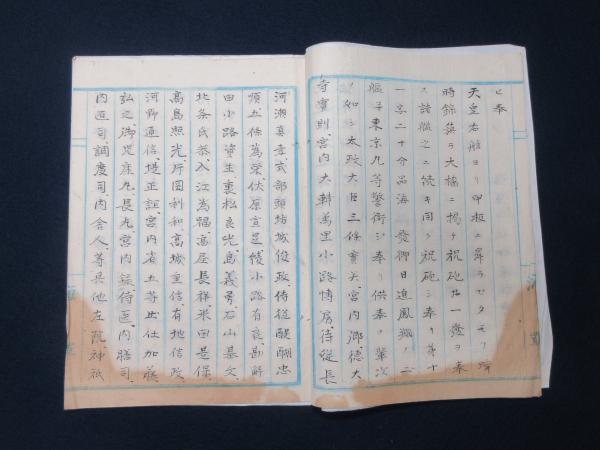 ヒ奉
天皇右舷ヨリ甲板ニ昇ラセタモフ
時錦旗ヲ大檣ニ掲ケ祝砲廿一発ヲ奉
ス諸艦之ニ続キ同ク祝砲シ奉リ第十
一字二十分品海発御日進鳳翔ノ二
艦ヲ東京丸等警衛シ奉リ供奉ノ輩次
ノ如シ太政大臣三條實美宮内卿徳大
寺實則、宮内大輔萬里小路博房、侍従長
河瀬真孝式部頭坊城俊政、侍従醍醐忠
順五條為榮伏原宣足綾小路有良勘解
田小路資生裏松良光、島義勇石山基文
北条氏恭入江為福、高屋長祥、米田是保
高島昭光、片岡利和、高城重信、有地信政
河野通信、堤正誼、宮内省五等出仕加藤
弘之、御児庸九、長九宮内
内匠司、調度司、内舎人等其他左院神祇